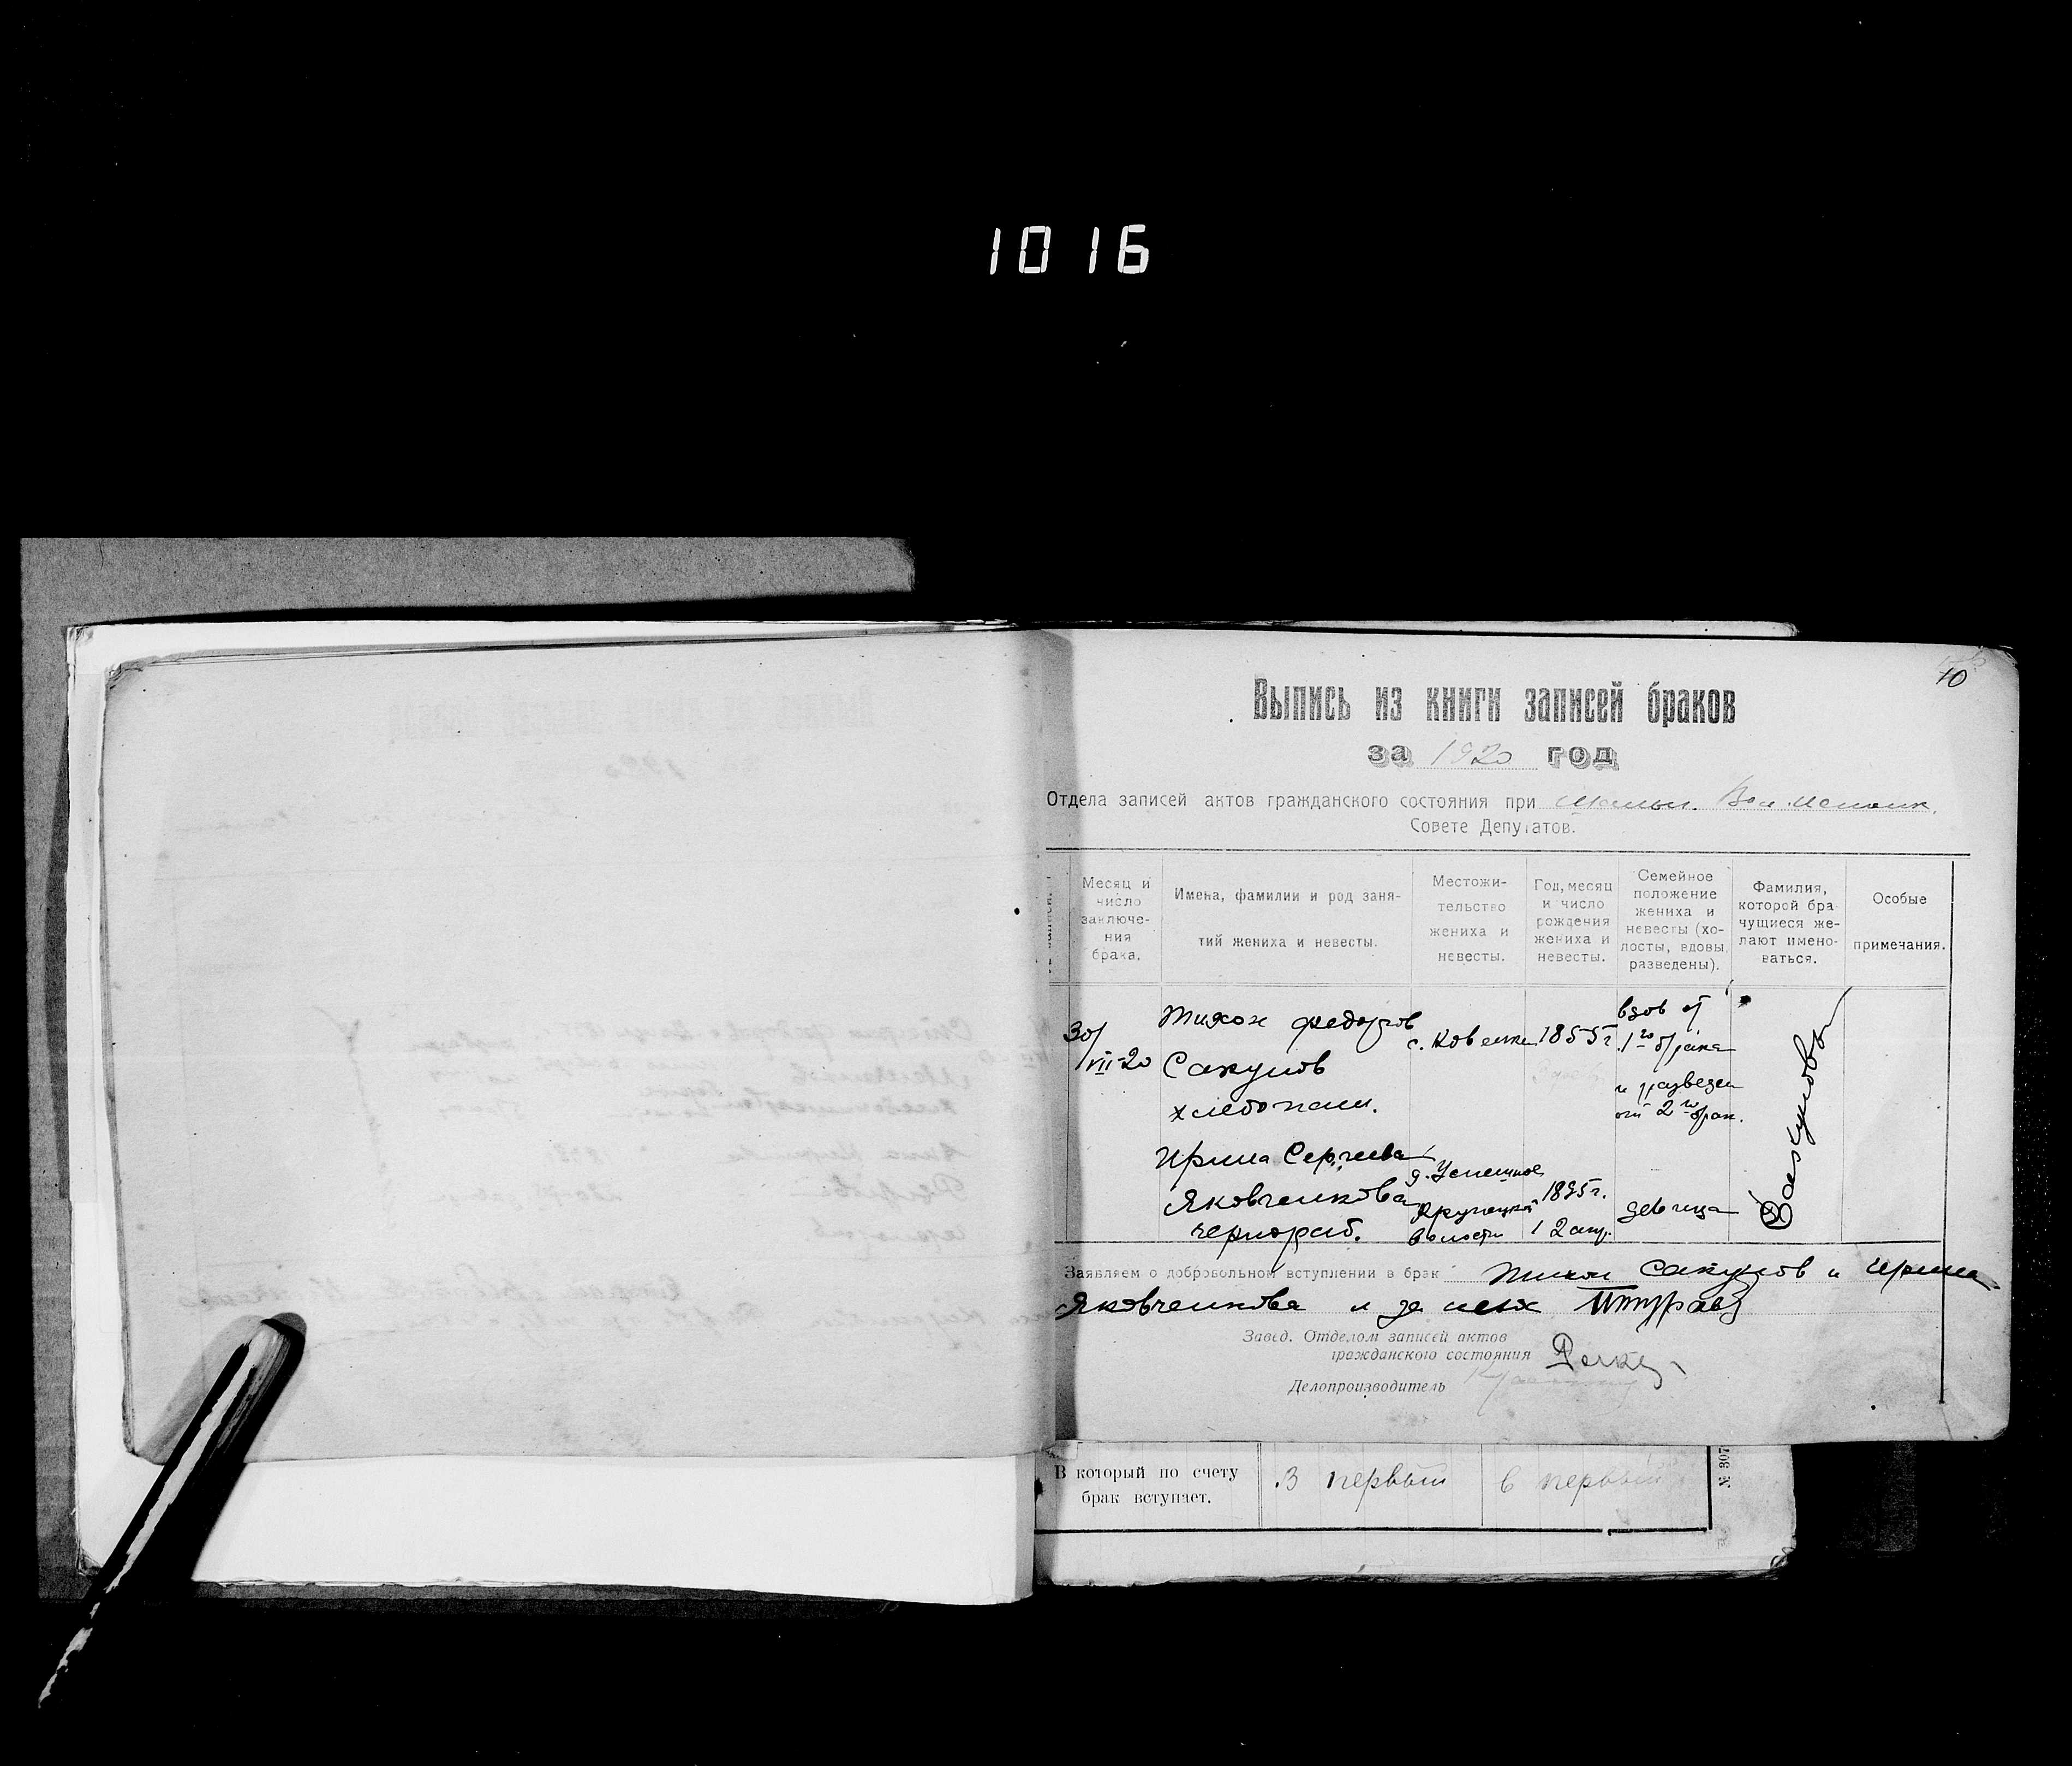 1016
10
Выпись из книги записей браков
за 1920 год
Отдела записей актов гражданского состояния при
Совете Депутатов.
Месяц и число заключения брака.
Имена, фамилии и род занятий жениха и невесты.
Местожительство жениха и невесты.
Год, месяц и число рождения жениха и невесты.
Семейное положение жениха и невесты (холосты, вдовы, разведены).
Фамилия, которой брачущиеся желают именоваться.
Особые примечания.
30/
VII-20
Тихон Федоров
Сакунов
хлебопаш.
1855 г
вдов от
1го брака
и разведен
от 2го брак.
Сакуновы
Ирина Сергеева
Яковченкова
чернораб.
д. Успешное
волости
1895 г.
12 апр.
девица
Заявляем о добровольном вступлении в брак Тихон Сакунов и Ирина
Яковченкова и за них
Завед. Отделом записей актов
гражданского состояния
Делопроизводитель
В который по счету
брак вступает.
В первый
в первый
№ 307